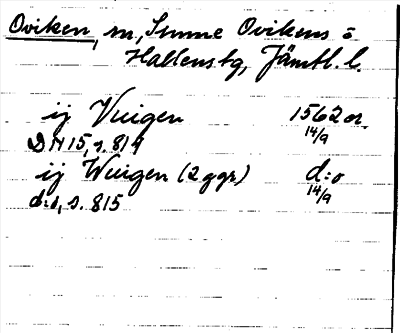 Oviken, m., Sunne Ovikens o.
Hallens tg, Jämtl. l.
ij Vuigen 1562 or.
14/9
DN 15, s. 814
ij Wuigen (2 ggr) d:o
14/9
d:o, s. 815